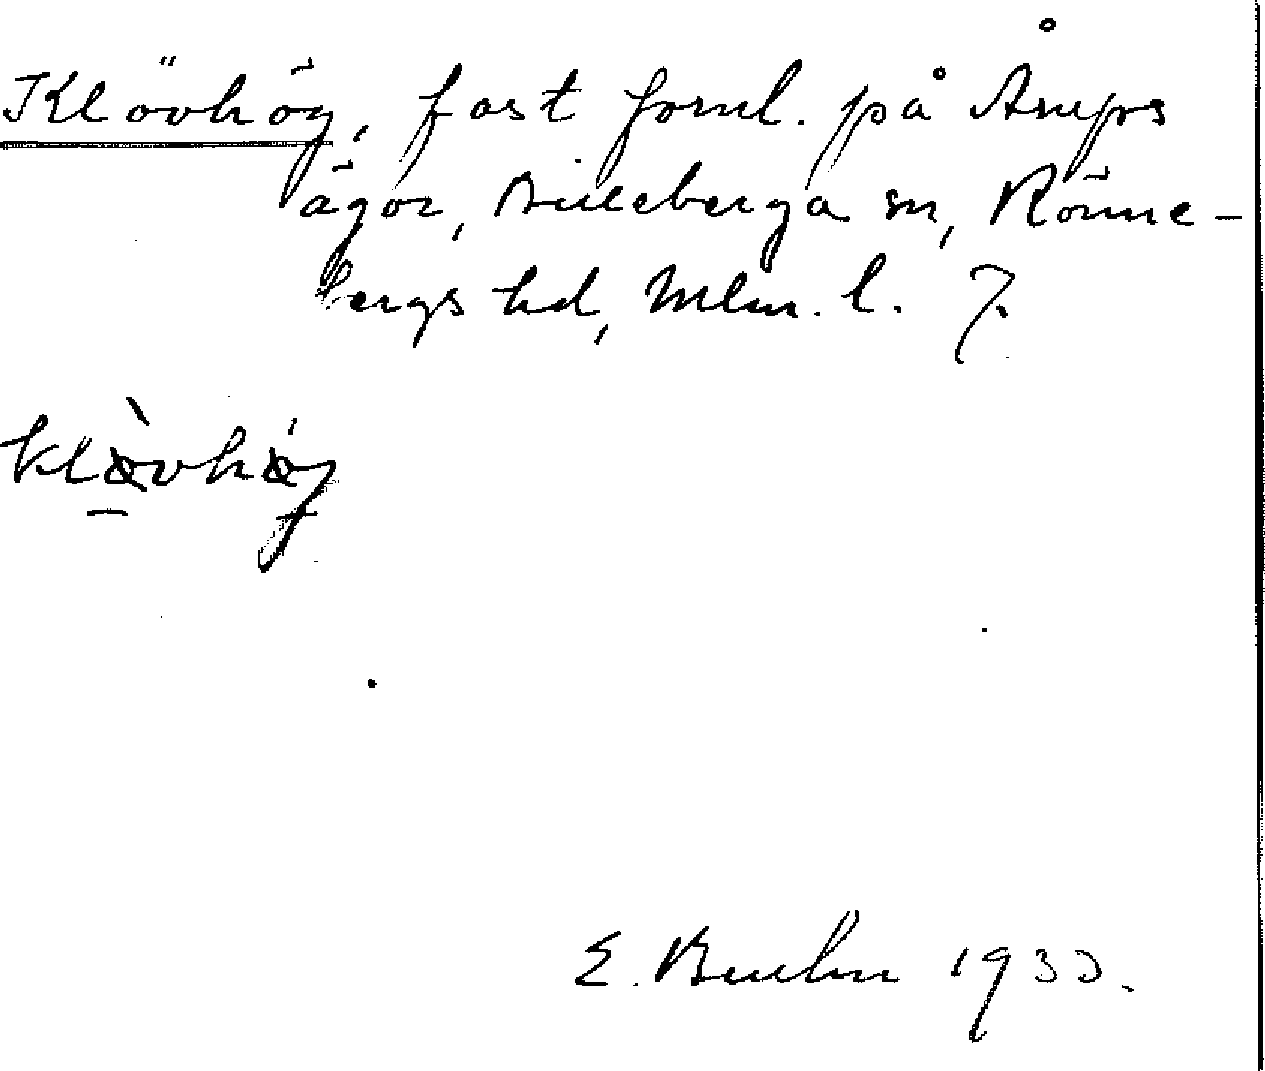 Klövhög, fast forml. på Årups
ägor, Billeberga sn, Rönne-
bergs hd, Mlm. l. 7.
klövhög
E. 1930.